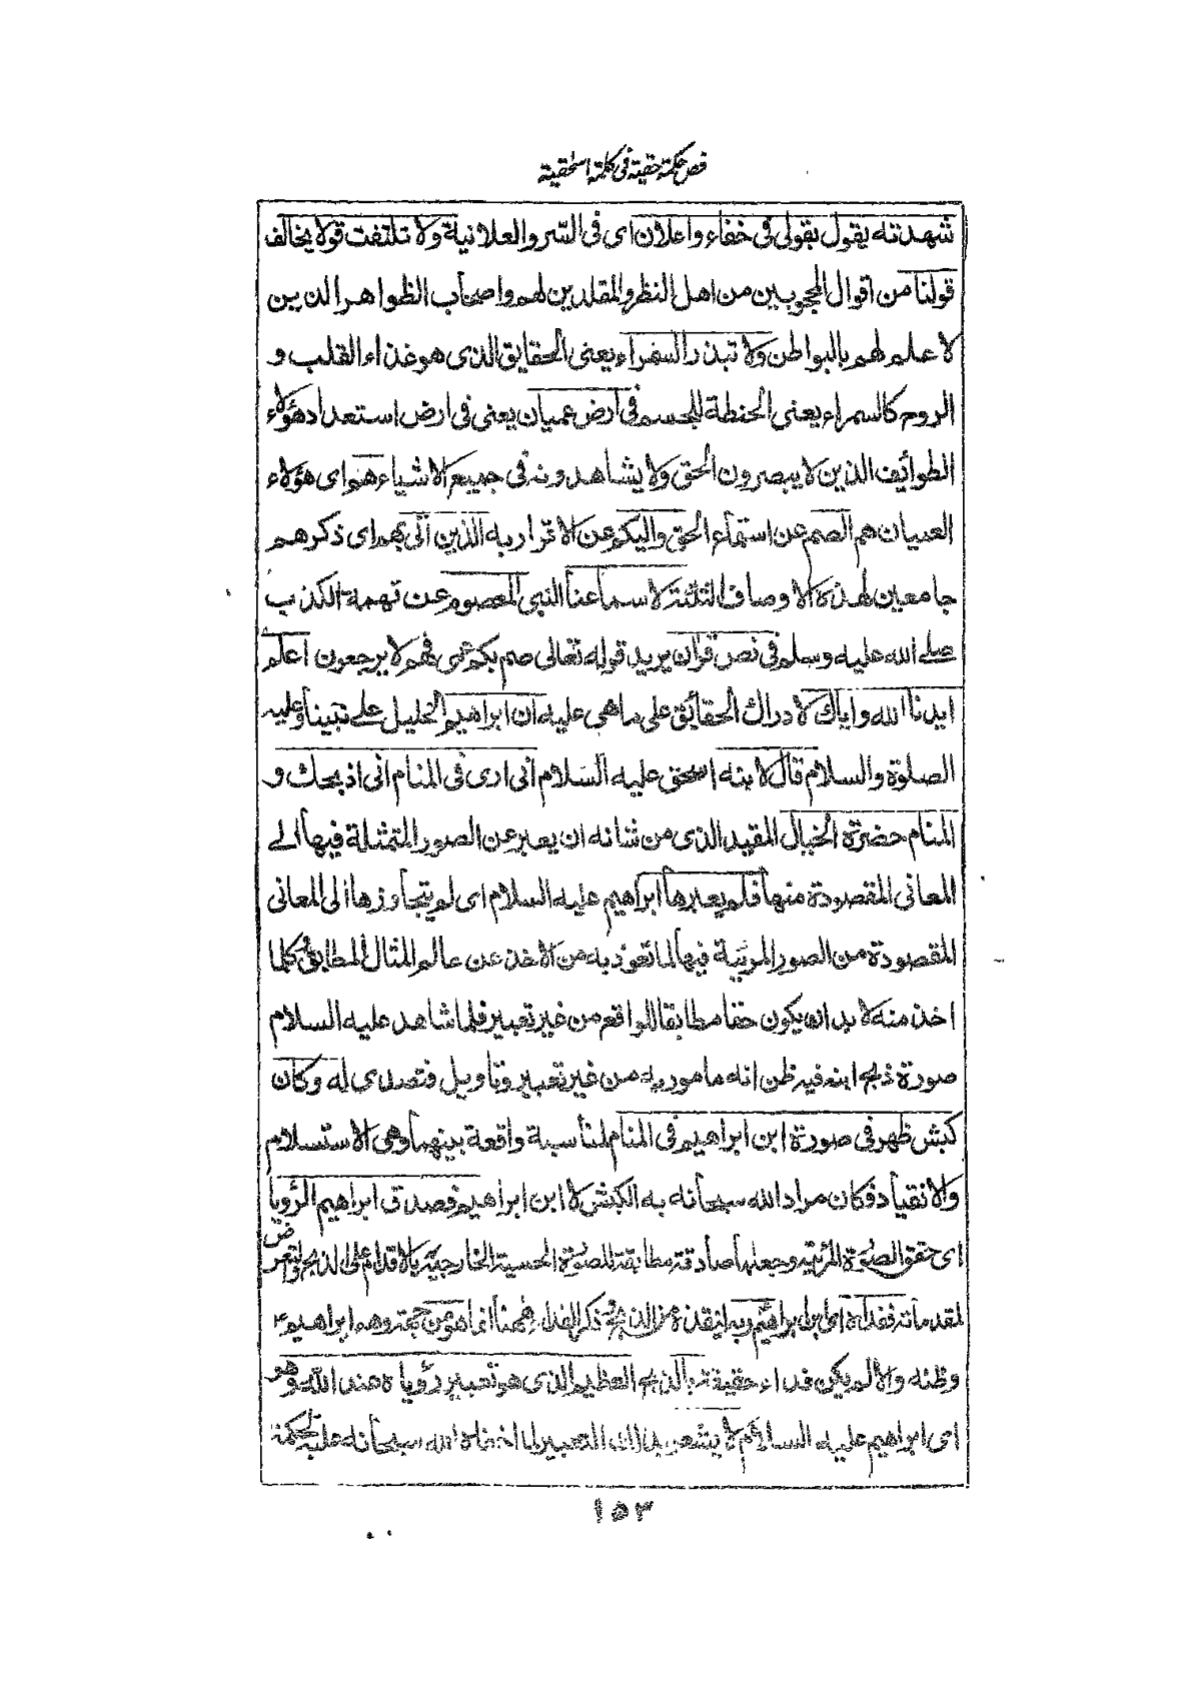 فص حكمة حقية فى كلمة اسحقية
شهدته يقول بقولى فى خفاء واعلان اى فى السر والعلانية ولا تلتفت قولا يخالف
قولنا من اقوال المحجوبين من اهل النظر والمقلدين لهم واصحاب الظواهر الذين
لا علم لهم بالبواطن ولا تبذر السمراء يعنى الحقايق الذى هو غذاء القلب و
الروح كالسمراء يعنى الحنطة للجسم فى ارض عميان يعنى فى ارض استعداد هؤلاء
الطوائف الذين لا يبصرون الحق ولا يشاهدونه فى جميع الاشياء هم اى هؤلاء
العميان هم الصم عن استماع الحق والبكم عن الاقرار به الذين اتى بهم اى ذكرهم
جامعين لهذه الاوصاف الثلثة لاسماعنا النبى المعصوم عن تهمة الكذب
صلے الله عليه وسلم فى نص قرآن يريد قوله تعالى صم بكم عمى فهم لا يرجعون اعلم
ايدنا الله واياك لادراك الحقائق على ماهى عليه ان ابراهيم الخليل علے نبينا وعليه
الصلوة والسلام قال لابنه اسحق عليه السلام انى ارى فى المنام انى اذبحك و
المنام حضرة الخيال المقيد الذى من شانه ان يعبر عن الصور المتمثلة فيها الے
المعانى المقصودة منها فلم يعبرها ابراهيم عليه السلام اى لم يتجاوزها الى المعانى
المقصودة من الصور المرئية فيها لما تعوذ به من الاخذ عن عالم المثال المطابق فى كلما
اخذ منه لا بد ان يكون حقا مطابقا للواقع من غير تعبير فلما شاهد عليه السلام
صورة ذبح ابنه فيه ظن انه مامور به من غير تعبير وتاويل فتصدى له وكان
كبش ظهر فى صورة ابن ابراهيم فى المنام لمناسبة واقعة بينهما وهى الاستسلام
والانقياد فكان مراد الله سبحانه به الكبش لا ابن ابراهيم فصدق ابراهيم الرؤيا
اى حقق الصورة المرئية وجعلها صادقة مطابقة للصورة الحسية الخارجية بالاقدام على الذبح والتعرض
لمقدماته ففداه اى ابن ابراهيم ربه لينقذه من الذبح ذكر الفداء ههنا انما هو من جهة وهم ابراهيم ع
وظنه والا لم يكن فداء حقيقة بالذبح العظيم الذى هو تعبير رؤياه عند الله وهو
اى ابراهيم عليه السلام لا يشعر بذلك التعبير لما اخفاه الله سبحانه عليه لحكمة
١٥٣